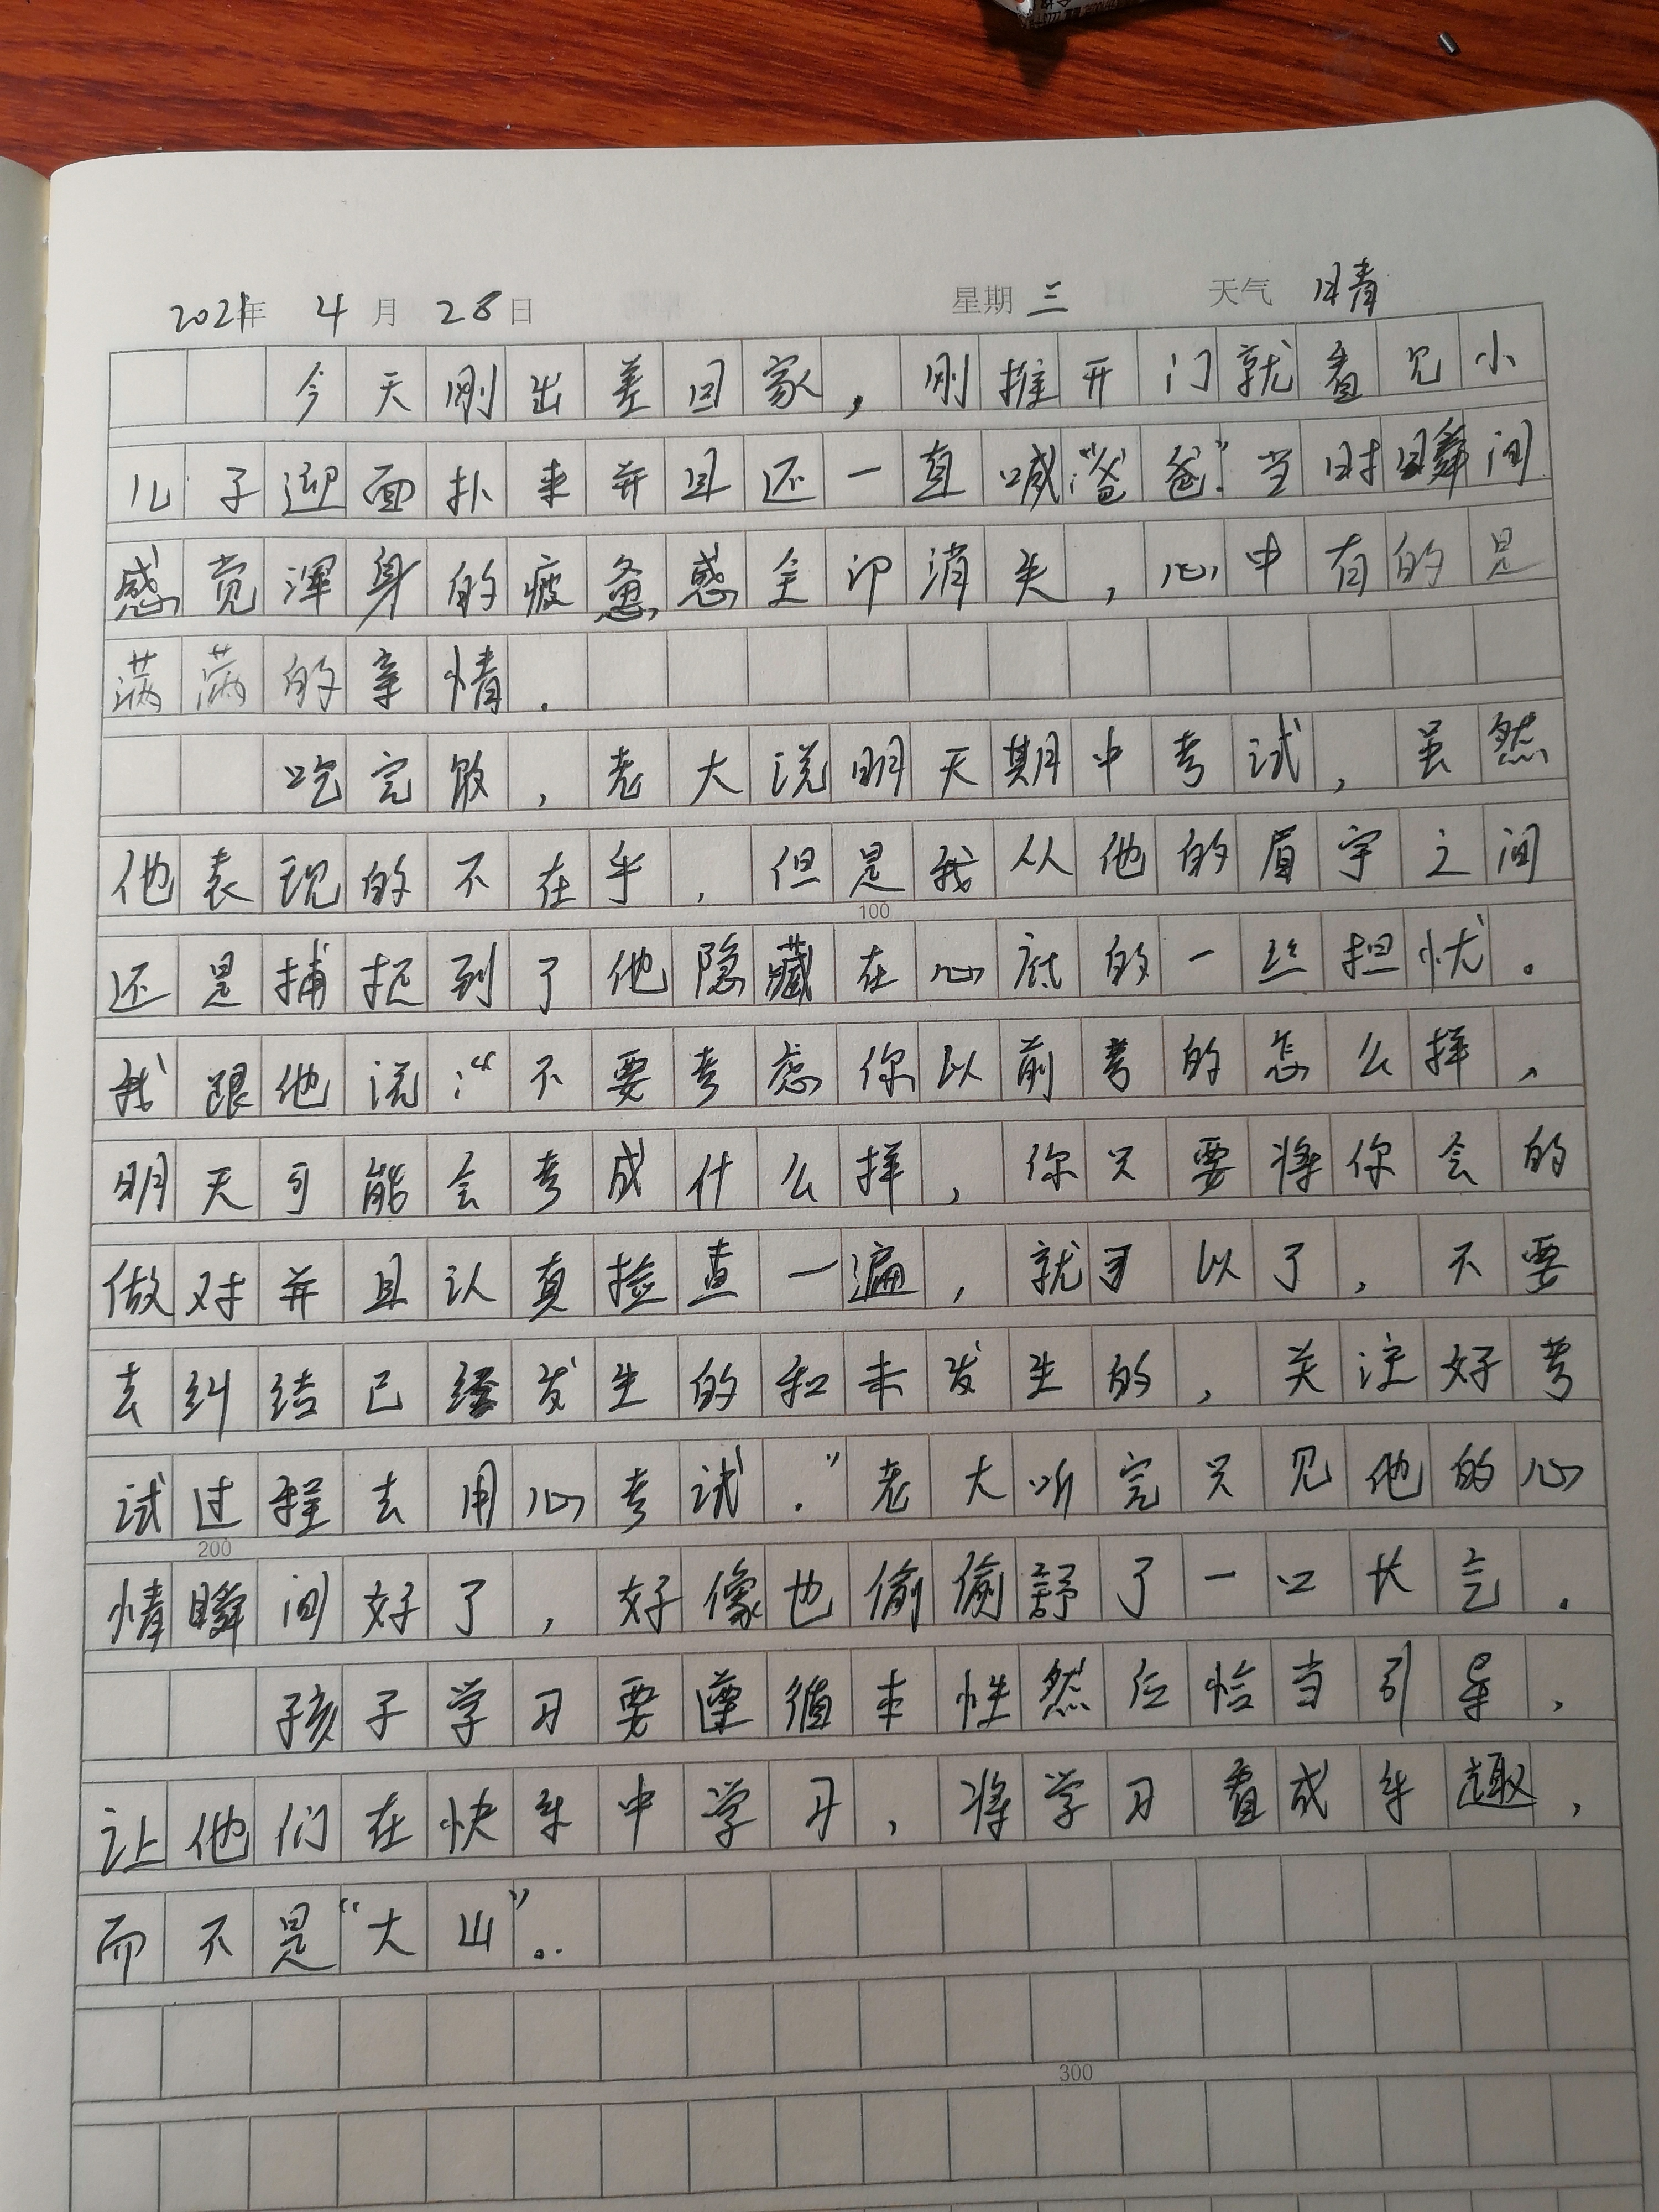 2021年 4月 28日 星期三 天气 晴
今天刚出差回家，刚推开门就看见小
儿子迎面扑来并且还一直喊“爸爸”.当时瞬间
感觉浑身的疲惫感全部消失，心中有的是
满满的亲情.
吃完饭，老大说明天期中考试，虽然
他表现的不在乎，但是我从他的眉宇之间
100
还是捕捉到了他隐藏在心底的一丝担忧.
我跟他说:“不要考虑你以前考的怎么样，
明天可能会考成什么样，你只要将你会的
做对并且认真捡查一遍，就可以了，不要
去纠结已经发生的和未发生的，关注好考
试过程去用心考试.”老大听完只见他的心
200
情瞬间好了，好像也偷偷舒了一口大气.
孩子学习要遵循本性然后恰当引导，
让他们在快乐中学习，将学习看成乐趣，
而不是“大山”.
300